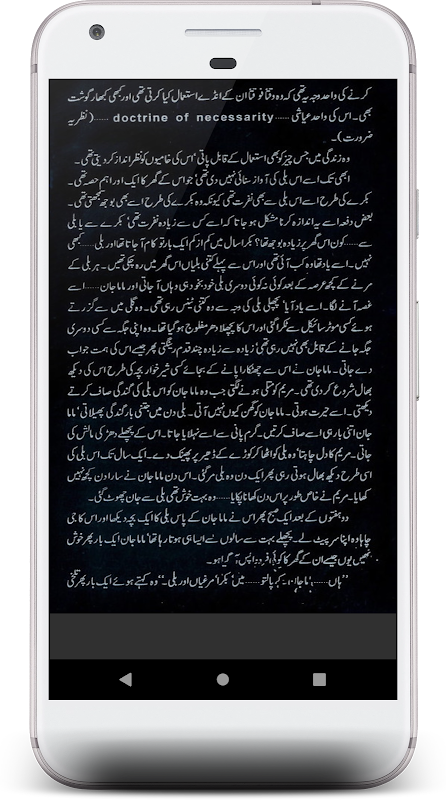 کرنے کی واحد وجہ یہ تھی کہ وہ وقتاً فوقتاً ان کے انڈے استعمال کیا کرتی تھی اور کبھی کبھار گوشت
بھی۔ اس کی واحد عیاشی...... doctrine of necessarity ......(نظریہ
ضرورت)۔
وہ زندگی میں جس چیز کو بھی استعمال کے قابل پاتی' اس کی خامیوں کو نظر انداز کر دیتی تھی۔
ابھی تک اسے اس بلی کی آواز سنائی نہیں دی تھی' جو اس کے گھر کا ایک اور اہم حصہ تھی۔
بکرے کی طرح اسے اس بلی سے بھی نفرت تھی کیونکہ وہ بکرے کی طرح اسے بھی بوجھ سمجھتی تھی۔
بعض دفعہ اسے یہ اندازہ کرنا مشکل ہو جاتا کہ اسے کس سے زیادہ نفرت تھی' بکرے سے یا بلی
سے...... کون اس گھر پر زیادہ بوجھ تھا؟ بکرا سال میں کم از کم ایک بار تو کام آ جاتا تھا اور بلی...... کبھی
نہیں۔ اسے یاد تھا وہ کب آئی تھی اور اس سے پہلے کتنی بلیاں اس گھر میں رہ چکی تھیں۔ ہر بلی کے
مرنے کے کچھ عرصہ کے بعد کوئی نہ کوئی دوسری بلی خود بخود ہی وہاں آ جاتی اور ماما جان...... اسے
غصہ آنے لگا۔ اسے یاد آیا' پچھلی بلی کی وجہ سے وہ کتنی ٹینس رہی تھی۔ وہ گلی میں سے گزرتے
ہوئے کسی موٹر سائیکل سے ٹکرا گئی اور اس کا پچھلا دھڑ مفلوج ہو گیا تھا۔ وہ اپنی جگہ سے کسی دوسری
جگہ جانے کے قابل بھی نہیں رہی تھی' زیادہ سے زیادہ چند قدم رینگتی پھر جیسے اس کی ہمت جواب
دے جاتی۔ ماما جان نے اس سے چھٹکارا پانے کے بجائے کسی شیر خوار بچہ کی طرح اس کی دیکھ
بھال شروع کر دی تھی۔ مریم کو متلی ہونے لگتی جب وہ ماما جان کو اس بلی کی گندگی صاف کرتے
دیکھتی۔ اسے حیرت ہوتی۔ ماما جان کو گھن کیوں نہیں آتی۔ بلی دن میں جتنی بار گندگی پھیلاتی' ماما
جان اتنی بار ہی اسے صاف کرتیں۔ گرم پانی سے اسے نہلایا جاتا۔ اس کے پچھلے دھڑ کی مالش کی
جاتی۔ مریم کا دل چاہتا' وہ بلی کو اٹھا کر کوڑے کے ڈھیر پر پھینک دے۔ ایک سال تک اس بلی کی
اسی طرح دیکھ بھال ہوتی رہی پھر ایک دن وہ بلی مر گئی۔ اس دن ماما جان نے سارا دن کچھ نہیں
کھایا۔ مریم نے خاص طور پر اس دن کھانا پکایا...... وہ بہت خوش تھی' بلی سے جان چھوٹ گئی۔
دو ہفتوں کے بعد ایک صبح پھر اس نے ماما جان کے پاس بلی کا ایک بچہ دیکھا اور اس کا جی
چاہا وہ اپنا سر پیٹ لے۔ پچھلے بہت سے سالوں سے ایسا ہی ہوتا رہا تھا' ماما جان ایک بار پھر خوش
تھیں یوں جیسے ان کے گھر کا کوئی فرد واپس آ گیا ہو۔
''ہاں...... ماما جان کے پالتو...... میں' بکرا' مرغیاں اور بلی۔'' وہ کہتے ہوئے ایک بار پھر تلخی